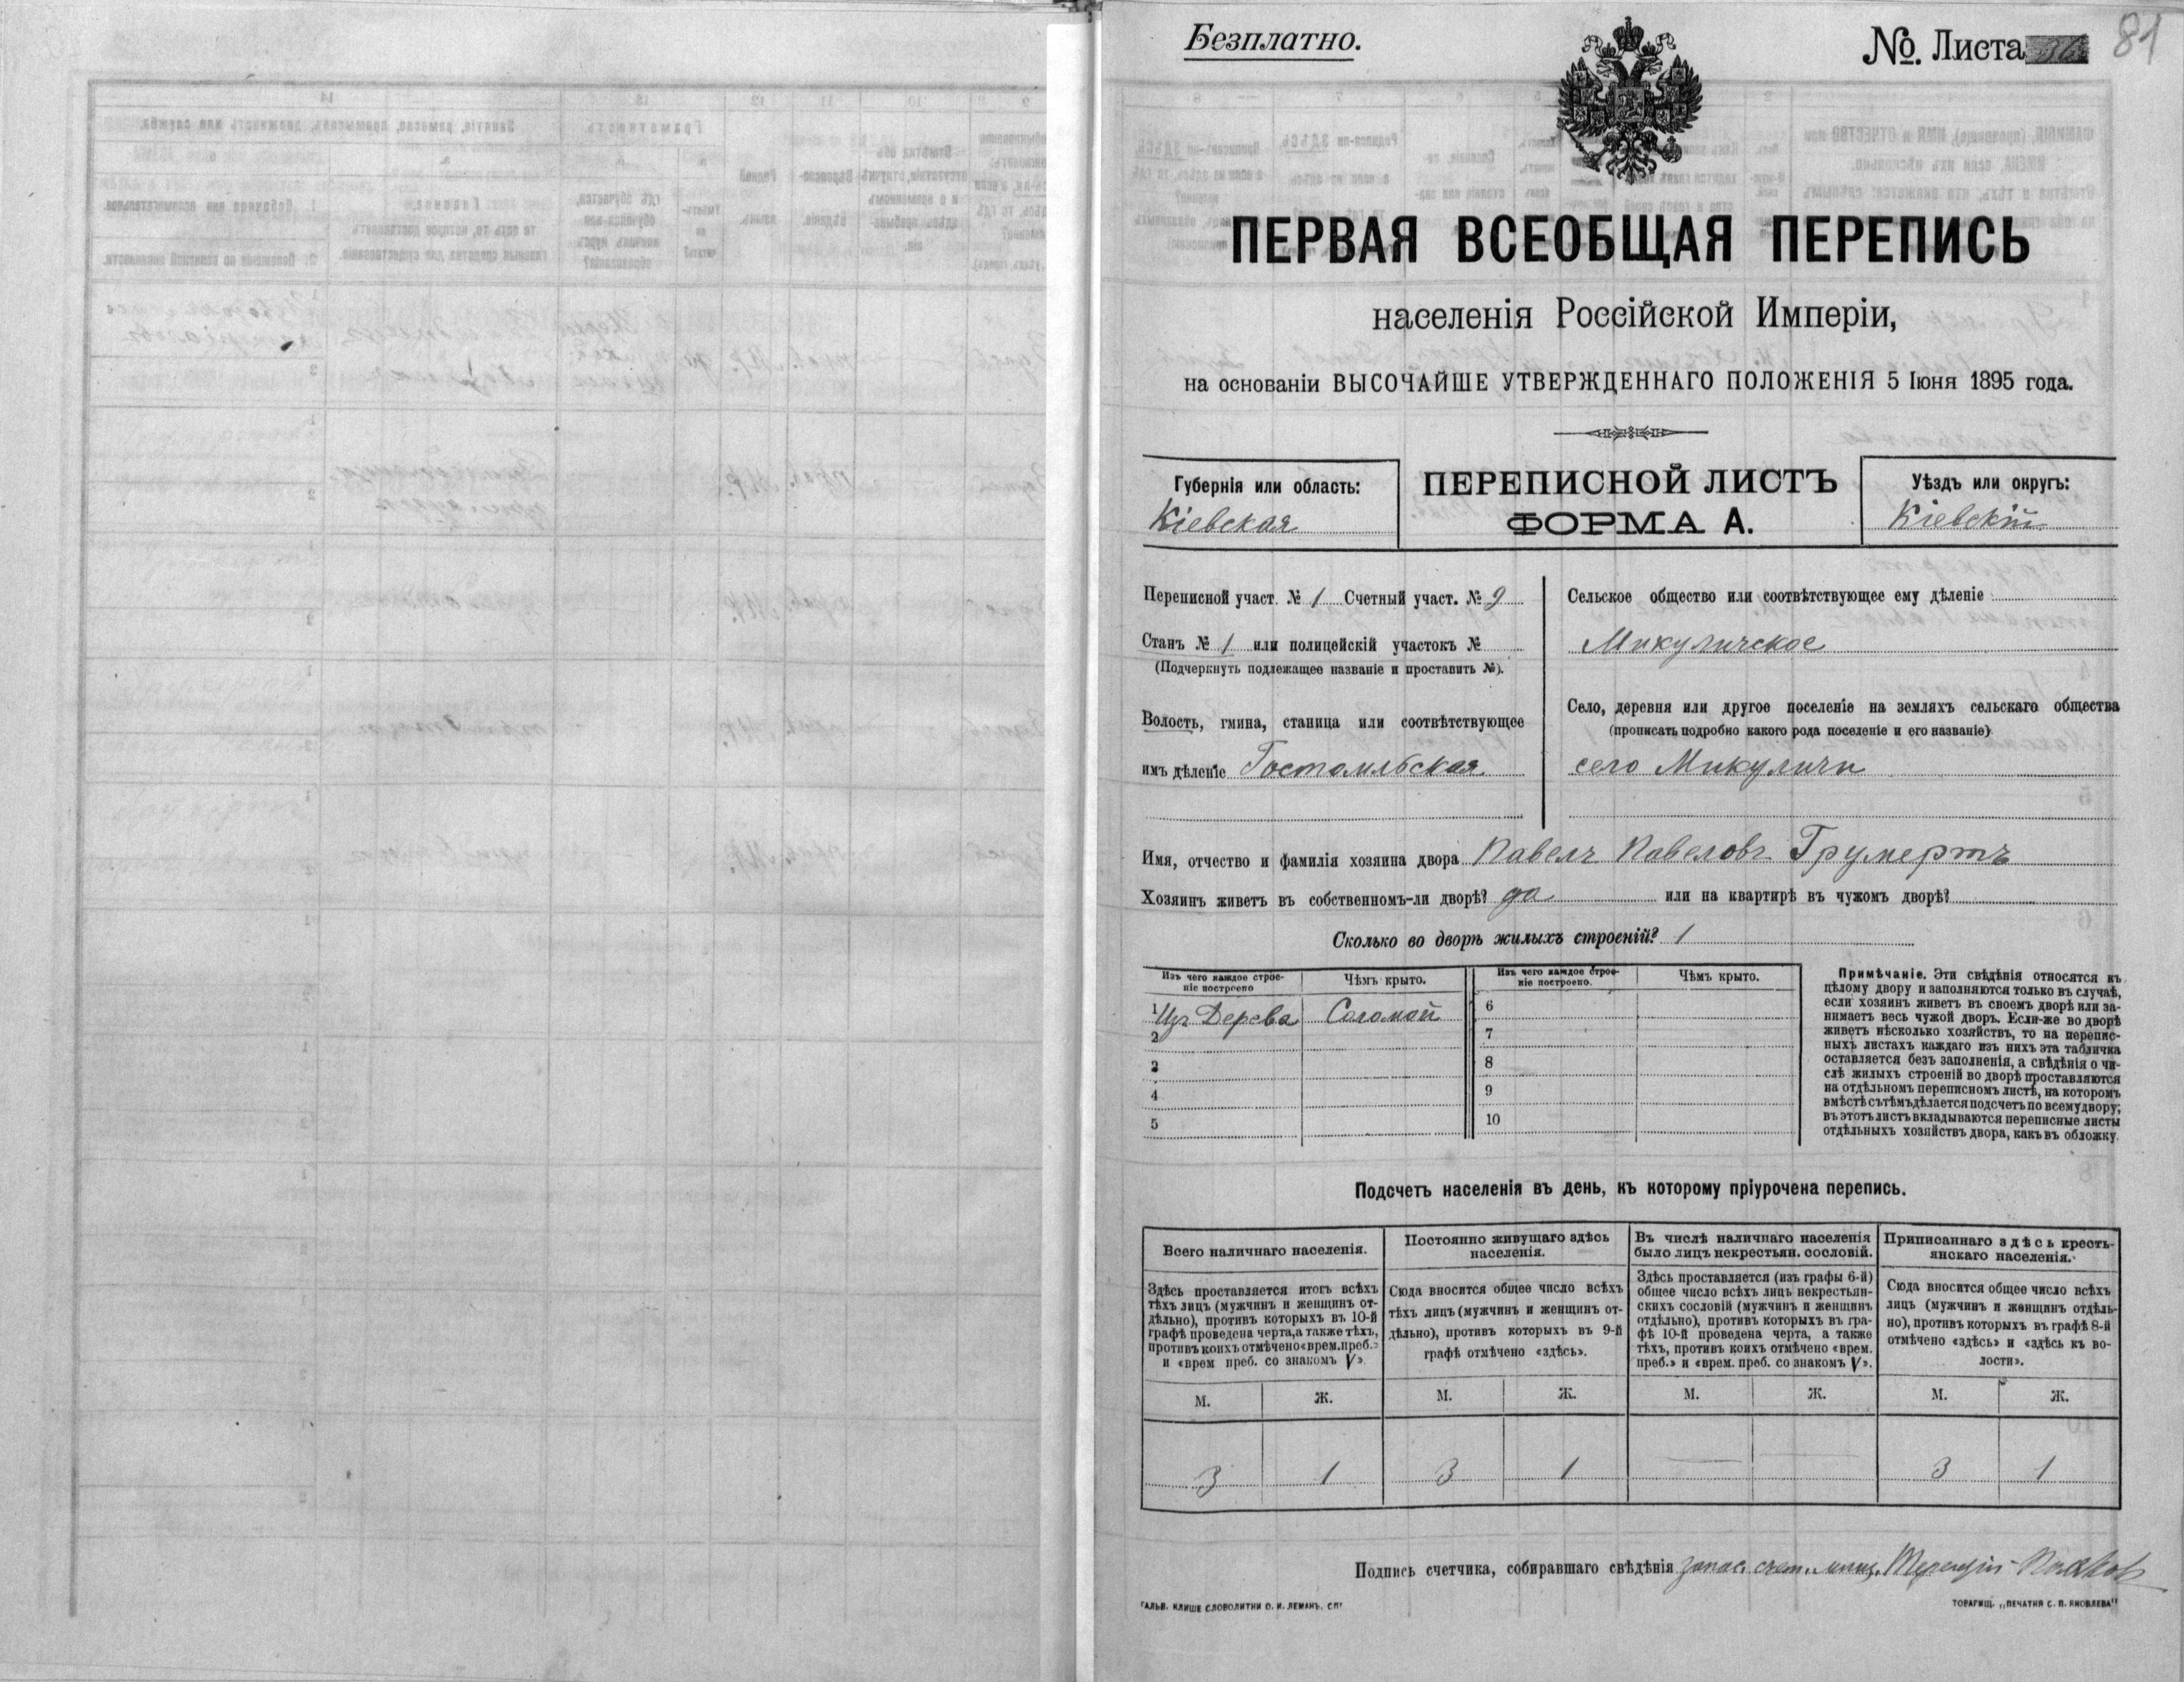 Безплатно.
№ Листа
81
ПЕРВАЯ ВСЕОБЩАЯ ПЕРЕПИСЬ
населенія Россійской Имперіи,
на основаніи ВЫСОЧАЙШЕ УТВЕРЖДЕННАГО ПОЛОЖЕНІЯ 5 Іюня 1895 года.
Губернія или область:
Кіевская
ПЕРЕПИСНОЙ ЛИСТЪ
ФОРМА А.
Уѣздъ или округъ:
Кіевскій
Переписной участ. № 1 Счетный участ. № 9
Станъ № 1 или полицейскій участокъ №
(Подчеркнуть подлежащее названіе и проставить №).
Волость, гмина, станица или соотвѣтствующее
имъ дѣленіе Гостомльская
Сельское общество или соотвѣтствующее ему дѣленіе
Микуличское
Село, деревня или другое поселеніе на земляхъ сельскаго общества
(прописать подробно какого рода поселеніе и его названіе)
село Микуличи
Имя, отчество и фамилія хозяина двора Павелъ Павеловъ
Хозяинъ живетъ въ собственномъ-ли дворѣ? да или на квартирѣ въ чужомъ дворѣ?
Сколько во дворѣ жилыхъ строеній? 1
Изъ чего каждое строе-
ніе построено
Чѣмъ крыто.
Изъ чего каждое строе-
ніе построено.
Чѣмъ крыто.
1 Изъ Дерева Соломой 6
2 7
3 8
4 9
5 10
Примѣчаніе. Эти свѣдѣнія относятся къ
цѣлому двору и заполняются только въ случаѣ,
если хозяинъ живетъ въ своемъ дворѣ или за-
нимаетъ весь чужой дворъ. Если-же во дворѣ
живетъ нѣсколько хозяйствъ, то на перепис-
ныхъ листахъ каждаго изъ нихъ эта табличка
оставляется безъ заполненія, а свѣдѣнія о чи-
слѣ жилыхъ строеній во дворѣ проставляются
на отдѣльномъ переписномъ листѣ, на которомъ
вмѣстѣ съ тѣмъ дѣлается подсчетъ по всему двору;
въ этотъ листъ вкладываются переписные листы
отдѣльныхъ хозяйствъ двора, какъ въ обложку.
Подсчетъ населенія въ день, къ которому пріурочена перепись.
Всего наличнаго населенія.
Здѣсь проставляется итогъ всѣхъ
тѣхъ лицъ (мужчинъ и женщинъ от-
дѣльно), противъ которыхъ въ 10-й
графѣ проведена черта, а также тѣхъ,
противъ коихъ отмѣчено «врем. преб.»
и «врем преб. со знакомъ V».
Постоянно живущаго здѣсь
населенія.
Сюда вносится общее число всѣхъ
тѣхъ лицъ (мужчинъ и женщинъ от-
дѣльно), противъ которыхъ въ 9-й
графѣ отмѣчено «здѣсь».
Въ числѣ наличнаго населенія
было лицъ некрестьян. сословій.
Здѣсь проставляется (изъ графы 6-й)
общее число всѣхъ лицъ некрестьян-
скихъ сословій (мужчинъ и женщинъ
отдѣльно), противъ которыхъ въ гра-
фѣ 10-й проведена черта, а также
тѣхъ, противъ коихъ отмѣчено «врем.
преб.» и «врем. преб. со знакомъ V».
Приписаннаго здѣсь кресть-
янскаго населенія.
Сюда вносится общее число всѣхъ
лицъ (мужчинъ и женщинъ отдѣль-
но), противъ которыхъ въ графѣ 8-й
отмѣчено «здѣсь» и «здѣсь къ во-
лости».
М. Ж. М. Ж. М. Ж. М. Ж.
3 1 3 1 — — 3 1
Подпись счетчика, собиравшаго свѣдѣнія запас. счет.
ГАЛЬВ. КЛИШЕ СЛОВОЛИТНИ О. И. ЛЕМАНЪ, СПГ
ТОВАРИЩ. „ПЕЧАТНЯ С. П. ЯКОВЛЕВА"